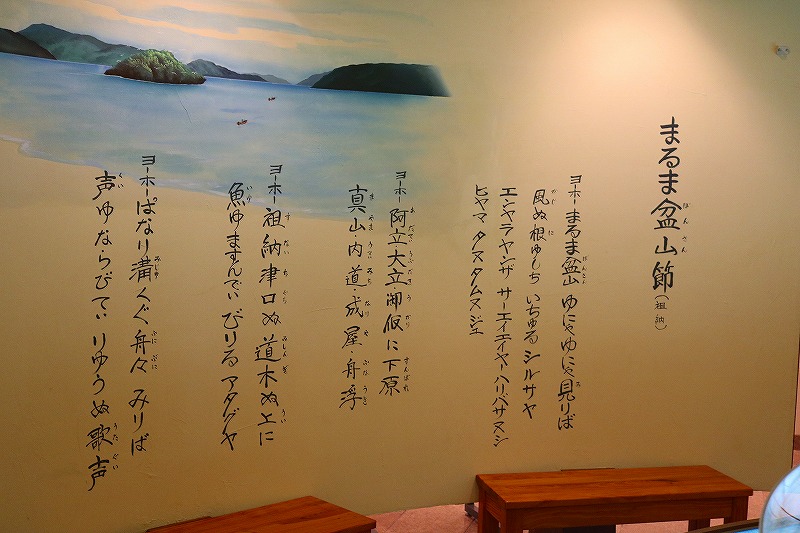 まるま盆山節（祖納）
ヨーホー まるま盆山 ゆにゃゆにゃ見りば
風ぬ根ゆしち いちゅる シルサヤ
エンヤラヤンザ サーエイエイヤーハリバサヌシ
ヒヤマ タヌスタムヌジェ
ヨーホー 阿立・大立・御仮に下原
真山・内道・成屋・舟浮
ヨーホー 祖納津口ぬ道木ぬ上に
魚ゆますんでぃ びりる アタグヤ
ヨーホー ぱなり溝くぐ舟々 みりば
声ゆならびてぃ りゆうぬ歌声